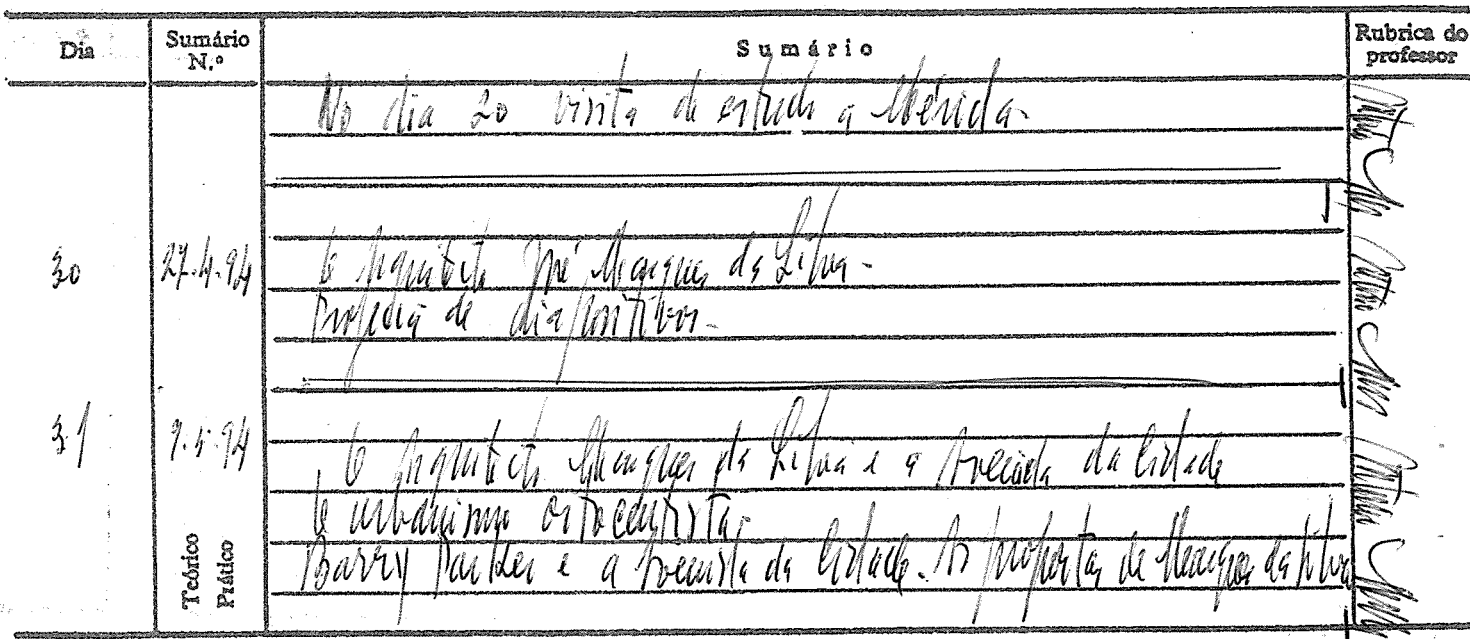 Dia
Sumário N.º
Sumário
Rubrica do professor
No dia 20 visita de estudo a Mérida.
30
27.4.94
O Arquitecto José Marques da Silva.
Projecção de diapositivos.
31
9.5.94
O Arquitecto Marques da Silva e a Avenida da Cidade
O urbanismo oitocentista.
Barry Parker e a Avenida da Cidade. As propostas de Marques da Silva
Teórico
Prático